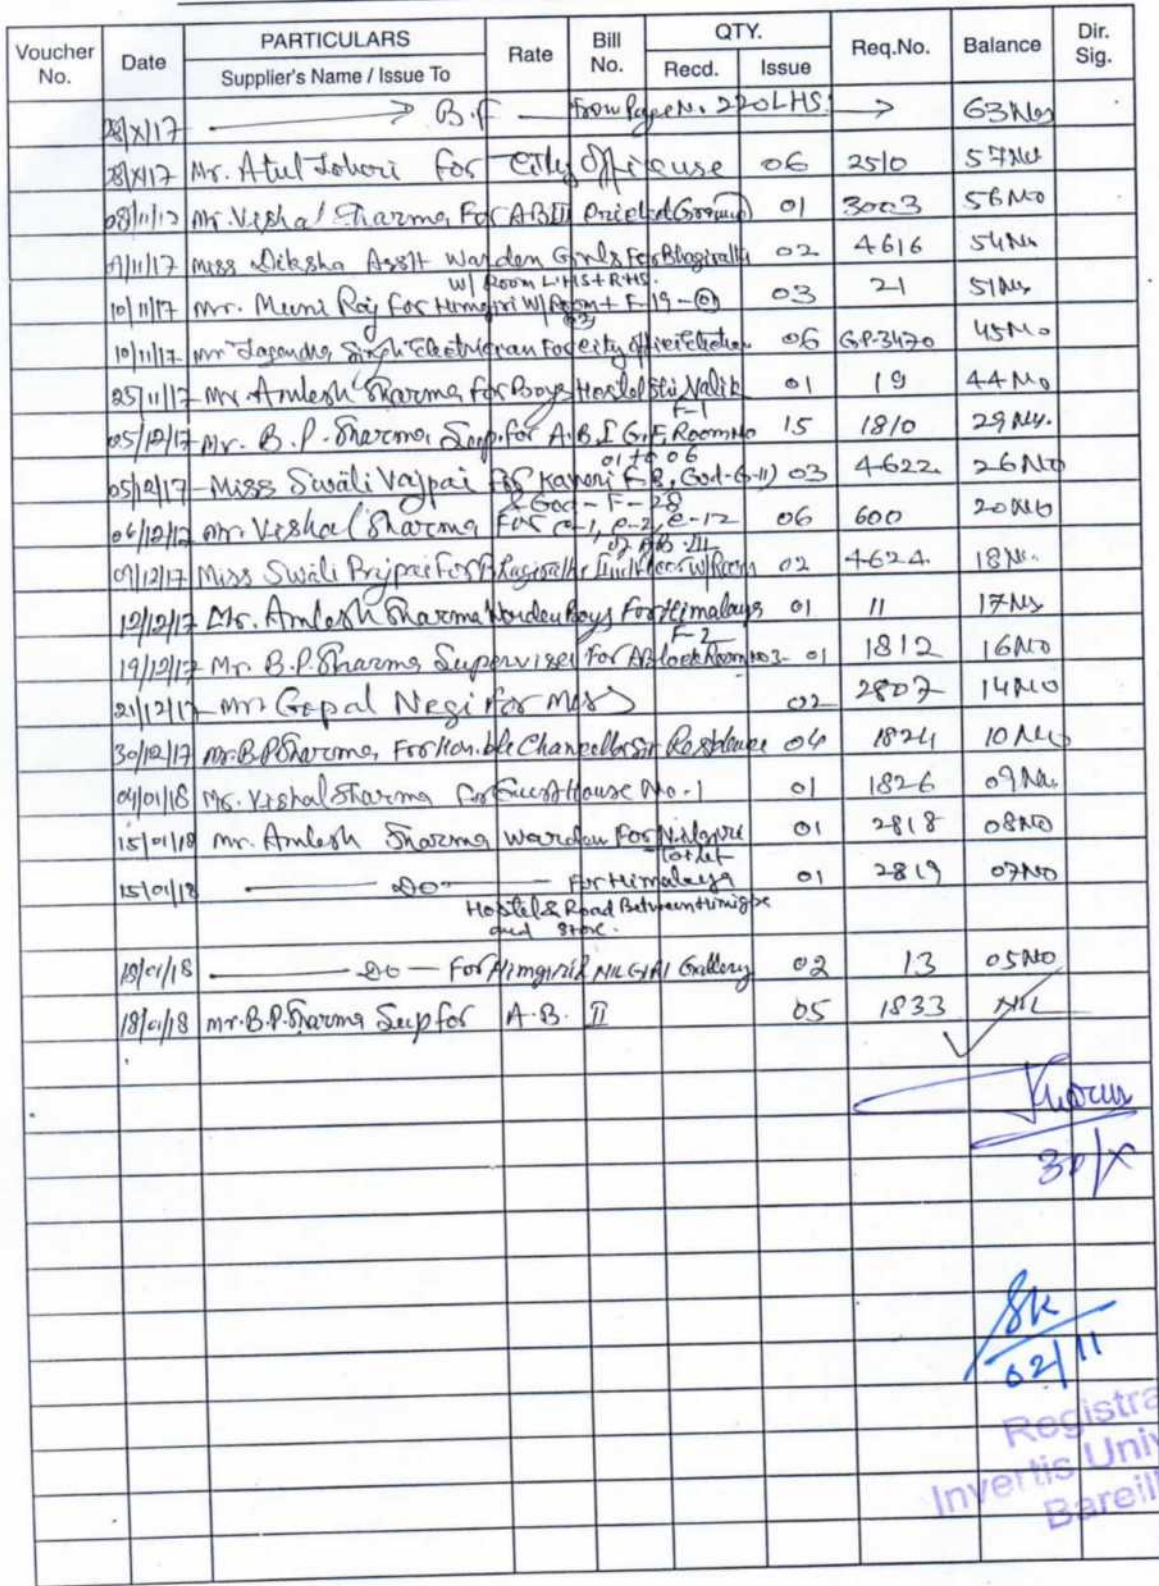 Voucher No. Date PARTICULARS Rate Bill No. QTY. Req.No. Balance Dir. Sig.
Supplier's Name / Issue To Recd. Issue
28/X/17 B.F from Page No. 220 LHS. 63 Nos
28/X/17 Mr. Atul Johori for City Office use 06 2510 57 Nos
08/11/17 Mr. Vishal Sharma For AB III 01 3003 56 No
9/11/17 Miss Diksha Asstt Warden Girls For Bhagirathi 02 4616 54 No
W/Room L.HS+R.HS.
10/11/17 Mr. Muni Raj For Himgiri W/Room + F-19-01 03 21 51 Nos
10/11/17 Mr Jagendra Singh Electrician For City Office 06 GP-3470 45 No
25/11/17 Mr Amlesh Sharma for Boys Hostel 01 19 44 No
F-1
05/12/17 Mr. B.P. Sharma Sup. for A.B.I G.F, Room No 15 1810 29 Nos.
01 to 06
05/12/17 Miss Swāli Vajpai For Kaveri F-8, God-G-11) 03 4622. 26 No
& God-F-28
06/12/17 Mr. Vishal Sharma For e-1, e-2, e-12 06 600 20 No
of AB.III
09/12/17 Miss Swāli Bajpai For Bhagirathi W/Room 02 4624. 18 No.
12/12/17 Mr. Amlesh Sharma Warden Boys For Himalaya 01 11 17 Nos
F-2
19/12/17 Mr. B.P. Sharma Supervisor For A Block Room No 3- 01 1812 16 No
21/12/17 Mr Gopal Negi For Mess 02 2807 14 No
30/12/17 Mr. B.P. Sharma, For Hon.ble Chancellor Sir Residence 04 1824 10 No
04/01/18 Mr. Vishal Sharma For Guest House No-1 01 1826 09 No.
15/01/18 Mr. Amlesh Sharma Warden For Nilgiri 01 2818 08 No
Toilet
15/01/18 Do For Himalaya 01 2819 07 No
Hostel & Road Between Himigire
and store.
18/01/18 Do For Himgiri & NILGIRI Gallery 02 13 05 No
18/01/18 Mr. B.P. Sharma Sup for A.B. II 05 1833 NIL
30/X
SK
02/11
Registra
Invertis Univ
Bareill